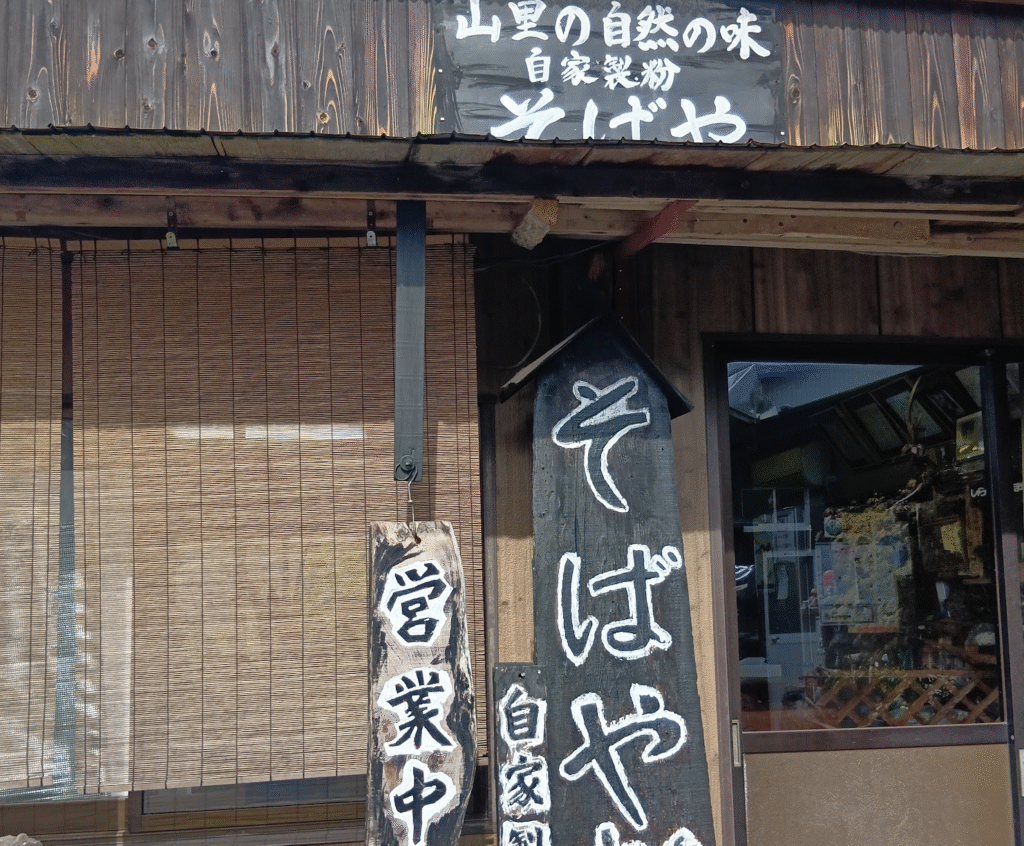 山里の自然の味
自家製粉
そばや
そばや
営業中
自家製